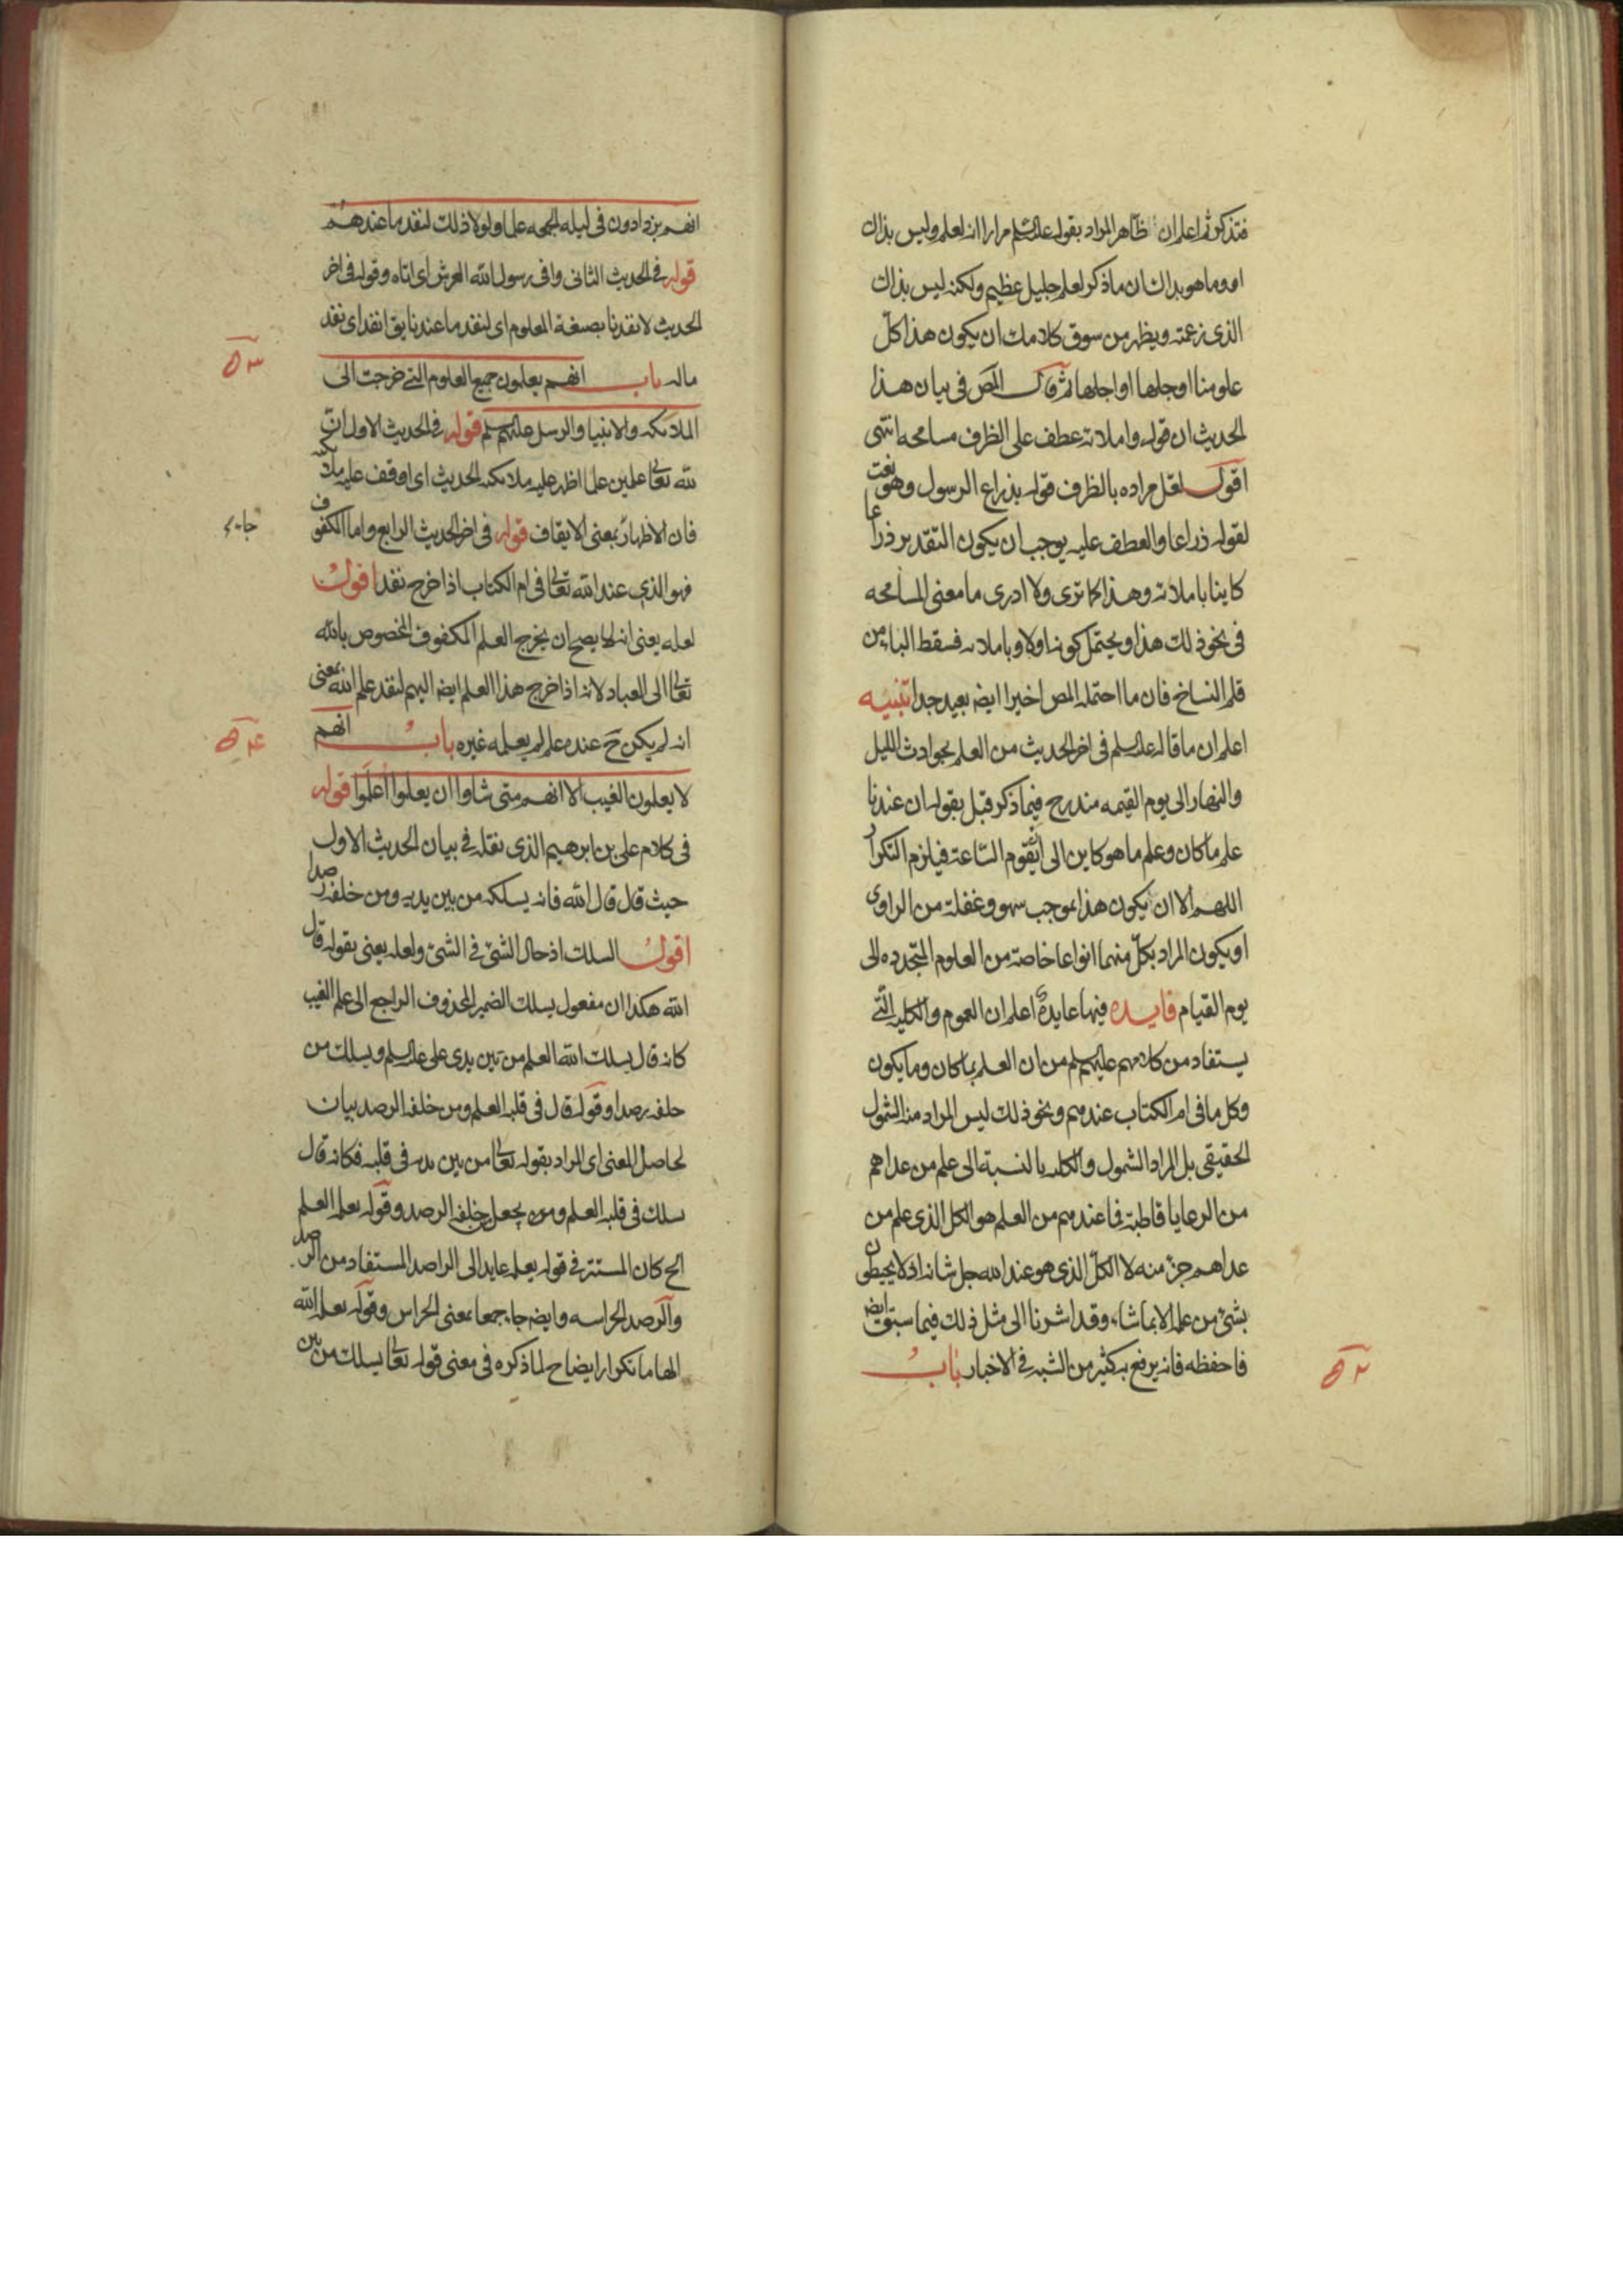 فتذكر ثم اعلم ان ظاهر المراد بقوله علیه السلم مرارا انه لعلم وليس بذاك
او وما هو بذاك ان ما ذكر لعلم جليل عظيم ولكنه ليس بذاك
الذى زعمته ويظهر من سوق كلامك ان يكون هذا كلّ
علومنا او جلها او اجلها ثم قال المص فى بيان هذا
الحديث ان قوله واملائه عطف على الظرف مسامحه انتهى
اقول لعّل مراده بالظرف قوله بذراع الرسول وهو نعت
لقوله ذراعا والعطف عليه يوجب ان يكون التقدير ذراعا
كاينا باملائه وهذا كما ترى ولا ادرى ما معنى المسامحه
فى نحو ذلك هذا ويحتمل كونه اولا وباملائه فسقط الباء من
قلم النساخ فان ما احتمله المص اخيرا ايضه بعيد جدا تنبيه
اعلم ان ما قاله علیه السلم فى اخر الحديث من العلم بحوادث الليل
والنهار الى يوم القيمه مندرج فيما ذكر قبل بقوله ان عندنا
علم ما كان وعلم ما هو كاين الى ان تقوم السّاعة فيلزم التكرار
اللهم الا ان يكون هذا بموجب سهو وغفلة من الراوى
او يكون المراد بكلّ منهما انواعا خاصة من العلوم المتجدده الى
يوم القيام فايده فيها عايدة اعلم ان العموم والكليه الّتى
يستفاد من كلامهم عليهم السلم من ان العلم بما كان وما يكون
وكل ما فى ام الكتاب عندهم ونحو ذلك ليس المراد منه الشمول
الحقيقى بل المراد الشمول والكليه بالنسبة الى علم من عداهم
من الرعايا قاطبة فما عندهم من العلم هو الكل الذى علم من
عداهم جزء منه لا الكلّ الذى هو عند الله جل شانه اذ لا يحيطون
بشئ من علمه الا بما شاء وقد اشرنا الى مثل ذلك فيما سبق ايضه
فاحفظه فانه يرفع به كثير من الشبه فى الاخبار باب
۵۲
انهم يزدادون فى ليله الجمعه علما ولولا ذلك لنفد ما عندهم
قوله فى الحديث الثانى وافى رسول الله العرش اى اتاه وقوله فى اخر
الحديث لانفدنا بصيغة المعلوم اى لنفد ما عندنا يق انفد اى نفد
ماله باب انهم يعلمون جميع العلوم التى خرجت الى
۵۳
الملائكه والانبيا والرسل عليهم السلم قوله فى الحديث الاول انّ
لله تعالى علمين علما اظهر عليه ملائكته الحديث اى اوقف عليه ملائكته
فان الاظهار بمعنى الايقاف قوله فى اخر الحديث الرابع واما المكفوف
جاء
فهو الذى عند الله تعالى فى ام الكتاب اذا خرج نفد اقول
لعله يعنى انه لا يصح ان يخرج العلم المكفوف المخصوص بالله
تعالى الى العباد لانه اذا خرج هذا العلم ايضه اليهم لنفد علم الله بمعنى
انه لم يكن ح عنده علم لم يعلمه غيره باب انهم
۵۴
لا يعلمون الغيب الا انهم متى شاوا ان يعلموا اعلموا قوله
فى كلام على بن ابرهيم الذى نقله فى بيان الحديث الاول
حيث قال قال الله فانه يسلك من بين يديه ومن خلفه رصدا
اقول السلك ادخال الشئ فى الشئ ولعله يعنى بقوله قال
الله هكذا ان مفعول يسلك الضمير المحذوف الراجع الى علم الغيب
كانه قال يسلك الله العلم من بين يدى على علیه السلم ويسلك من
خلفه رصدا وقوله قال فى قلبه العلم ومن خلفه الرصد بيان
لحاصل المعنى اى المراد بقوله تعالى من بين يديه فى قلبه فكانه قال
يسلك فى قلبه العلم ويجعل من خلفه الرصد وقوله يعلمه العلم
الخ كان المستتر فى قوله يعلمه عايد الى الراصد المستفاد من الرصد
والرصد الحراسه وايضه جاء جمعا بمعنى الحراس وقوله يعلمه الله
الهاما تكرار ايضاح لما ذكره فى معنى قوله تعالى يسلك من بين